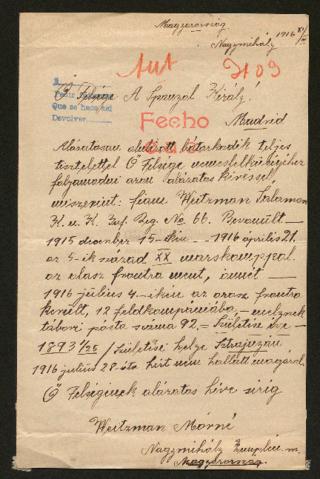 Magyarország
Nagymihály 1916 XI/
Aut
2109
Ő Felsége A Spanyol Király!
Que se hace así
Devolver
Fecho
Madrid
Alázatosan alulírott bátorkodik teljes
tisztelettel Ő Felsége nemeslelkűségéhez
folyamodni azon alázatos kéréssel
miszerint: fiam Weitzman Salamon
K. u. K. Inf. Reg. No 66. Bevonult —
1915 december 15-ikén — 1916 április 21.
az 5-ik század XX marskompagnal
az olasz frontra ment, ismét —
1916 július 4-ikén az orosz frontra
került, 12 feldkompániába, — melynek
tábori pósta száma 92. — Születési éve —
1893 / Születési helye Sztrajnyán
1916 július 28 óta hírt nem hallatt magáról.
Ő Felségének alázatos híve sírig
Weitzman Mórné
Nagymihály Zemplén m.
Magyarország.